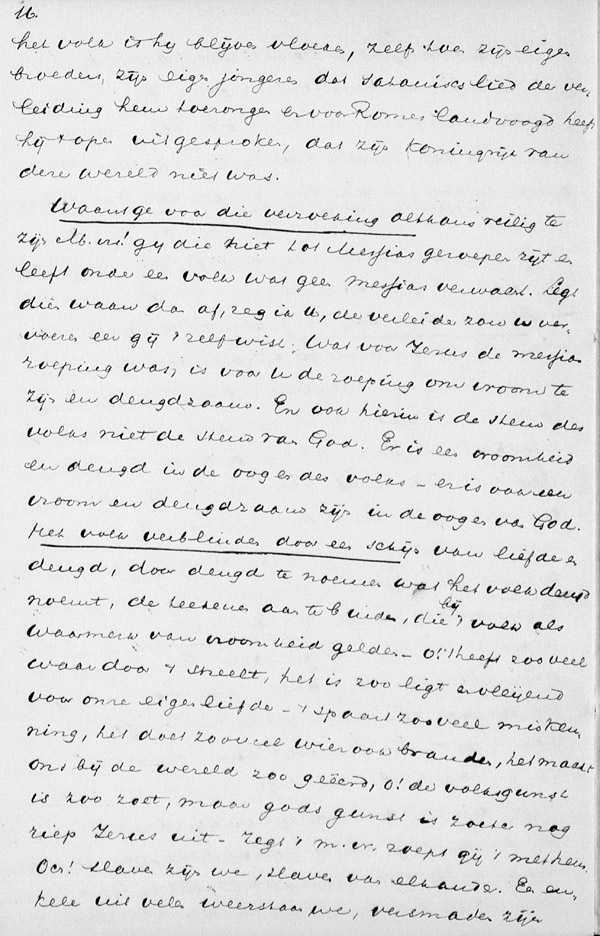 16.
het volk is hy blijven vloeken, zelfs toen zijn eigen
broeders, zijn eigen jongeren dat satanisch lied der ver-
leiding hem toezongen en voor Romes landvoogd heeft
hij open uitgesproken, dat zijn koningrijk van
deze wereld niet was.
Waant ge voor die verzoeking althans veilig te
zijn M. vr! gij die niet tot Messias geroepen zijt en
leeft onder een volk wat geen messias verwacht. Legt
dien waan dan af, zeg ik U, de verleider zou u ver-
voeren eer gij 't zelf wist. Wat voor Jezus de messias
roeping was, is voor U de roeping om vroom te
zijn en deugdzaam. En ook hierin is de stem des
volks niet de stem van God. Er is een vroomheid
en deugd in de oogen des volks – er is ook een
vroom en deugdzaam zijn in de oogen van God.
Het volk verblinden door een schijn van liefde en
deugd, door deugd te noemen wat het volk deugd
noemt, de teekenen aan te binden, die bij 't volk als
waarmerk van vroomheid gelden – O! 't heeft zoo veel
waardoor 't streelt, het is zoo ligt en vleijend
voor onze eigenliefde – 't spaart zoo veel misken-
ning, het doet zooveel wierook branden, het maakt
ons bij de wereld zoo geëerd, o! de volksgunst
is zoo zoet, maar gods gunst is zoeter nog
riep Jezus uit – zegt 't m. vr. roept gij 't met hem.
Och! slaven zijn we, slaven van elkander. Een en-
kele uit velen weerstaan we, versmaden zijn